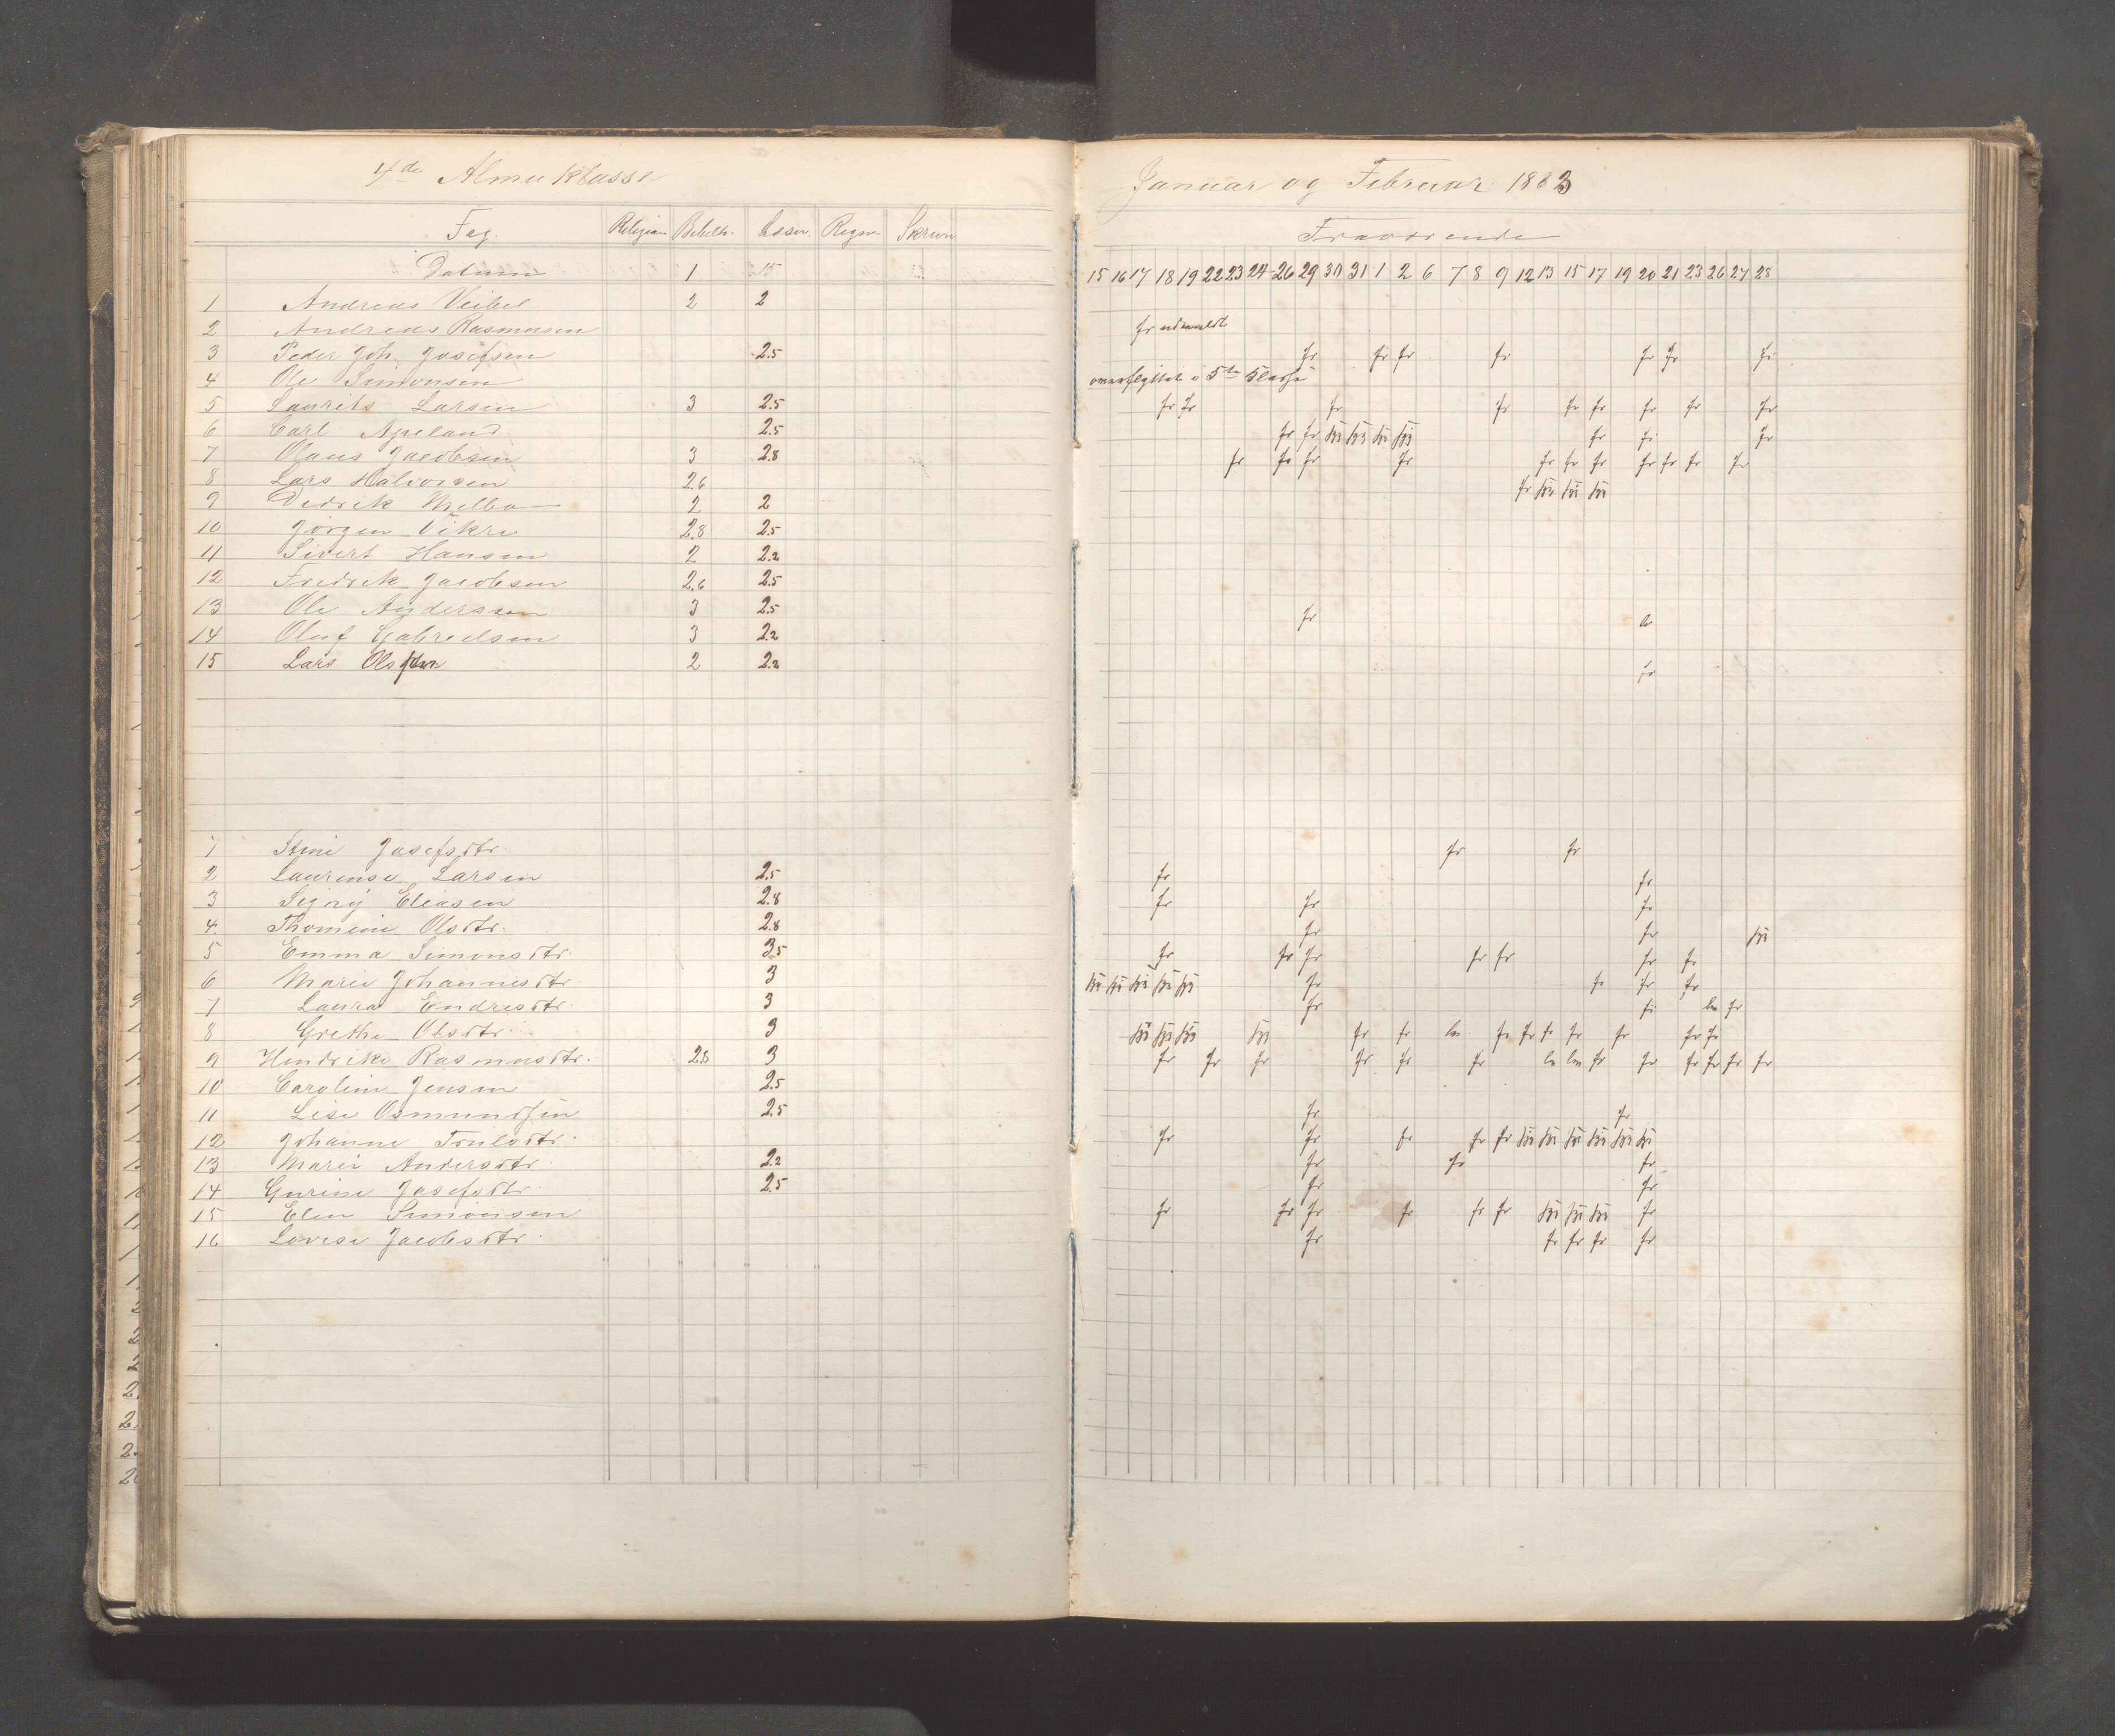 4de Almueklasse
Fag. Religion Bibelh. Læsn. Regn. Skrivn
Datum 1 15
1 Andreas Veibel 2 2
2 Andreas Rasmusen
3 Peder Joh. Josefsen 2.5
4 Ole Simonsen
5 Laurits Larsen 3 2.5
6 Carl Apeland 2.5
7 Olaus Jacobsen 3 2.8
8 Lars Halvorsen 2.6
9 Didrik Melbo 2 2
10 Jørgen Vikre 2.8 2.5
11 Sivert Hansen 2 2.2
12 Fredrik Jacobsen 2.6 2.5
13 Ole Anderssen 3 2.5
14 Oluf Gabrielsen 3 2.2
15 Lars Olsen 2 2.2
1 Stine Josefsdtr.
2 Laurense Larsen 2.5
3 Eliasen 2.8
4. Thomine Olsdtr. 2.8
5 Emma Simonsdtr. 3.5
6 Marie Johannesdtr. 3
7 Laura Endresdtr. 3
8 Grethe Olsdtr. 3
9 Hendrike Rasmusdtr. 2.8 3
10 Caroline Jensen 2.5
11 Lise Osmundsen 2.5
12 Johanne
13 Marie Andersdtr. 2.2
14 Gurine Josefsdtr. 2.5
15 Elen Simonsen
16 Lovise Jacobsdtr.
Januar og Februar 1883
Fraværende
15 16 17 18 19 22 23 24 26 29 30 31 1 2 6 7 8 9 12 13 15 17 19 20 21 23 26 27 28
fr udmeldt
fr fr fr fr fr fr fr
overflyttet i 5te Klasse
fr fr fr fr fr fr fr fr fr
fr fr fr fr fr
fr fr fr fr fr fr fr fr fr fr fr
fr
fr
fr
fr fr
fr fr
fr fr fr
fr fr
fr fr fr fr fr fr fr
fr fr fr fr
fr fr
fr fr fr fr fr fr fr fr fr
fr fr fr fr fr fr fr fr fr fr fr fr
fr fr
fr fr fr fr fr
fr fr fr
fr fr
fr fr fr fr fr fr fr
fr fr fr fr fr